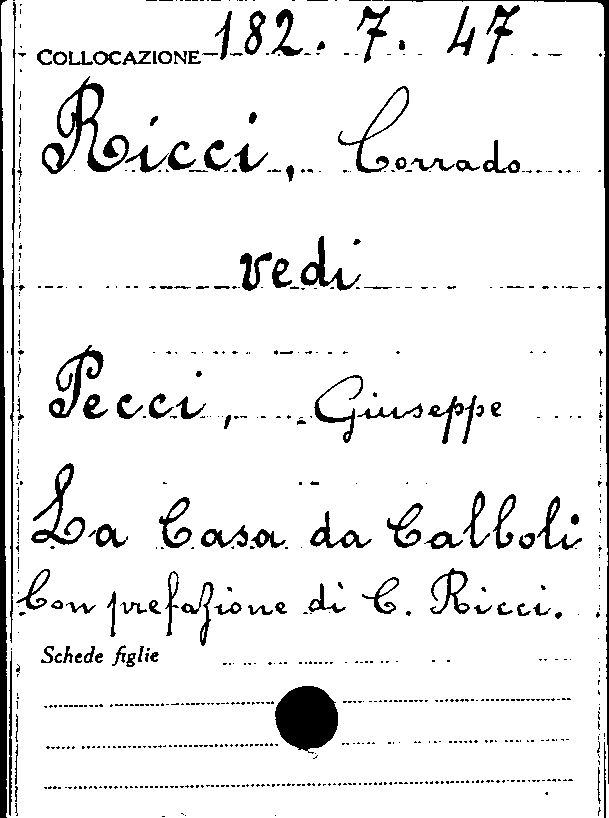 COLLOCAZIONE 182. 7. 47
Ricci, Corrado
vedi
Pecci, Giuseppe
La Casa da Calboli
Con prefazione di C. Ricci.
Schede figlie